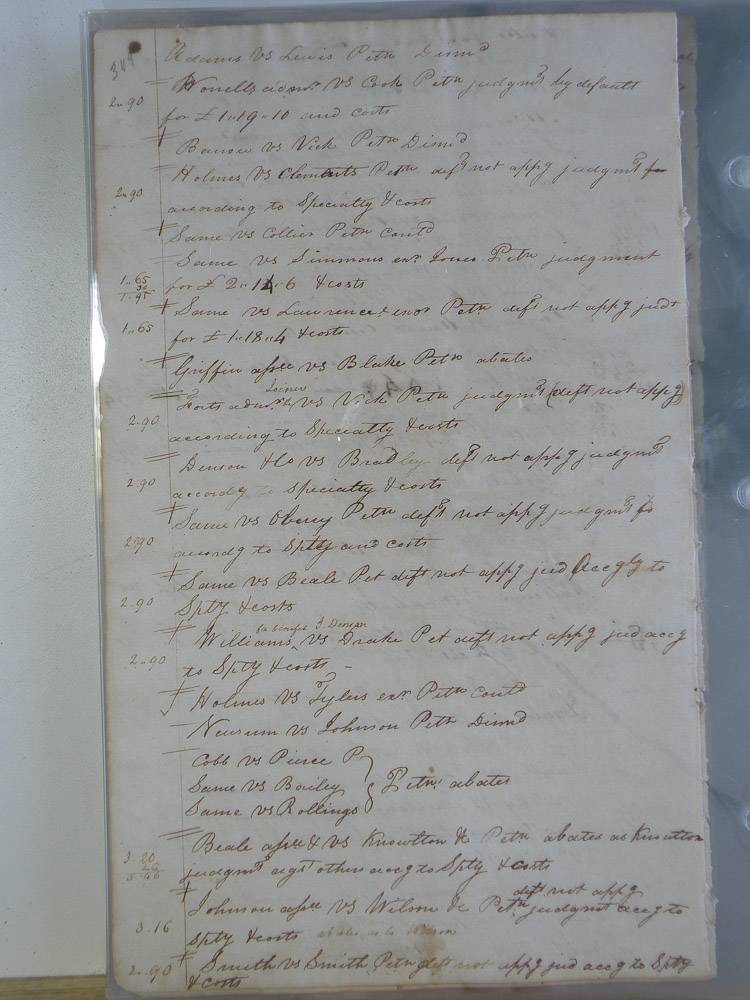 Adams vs Lewis Petn Dismd
2..90 admr vs Cook Petn judgmt by default
for £ 1..19..10 and costs
vs Vick Petn Dismd
2..90 Holmes vs Clements Petn deft not appg judgmt for
according to Specialty & costs
Same vs Collier Petn Contd
Same vs Simmons exr Jones Petn judgment
1..65 for £ 2..14..6 & costs
Same vs Lawrence exor Petn deft not appg judt
1..65 for £ 1..18..4 & costs
Griffin assee vs Blake Petn abates
2..90 Forts admr vs Vick Petn judgmt (deft not appg)
according to Specialty & costs
2..90 Denson & Co vs Bradley deft not appg judgmt
accordg to specialty & costs
Same vs Petn deft not appg judgmt fo
2..90 accordg to Splty and costs
Same vs Beale Pet deft not appg jud accgly to
2..90 Splty & costs
for benefit J Denson
Williams vs Drake Pet deft not appg jud accg
2..90 to Splty & costs –
Holmes vs Tylers exr Petn Contd
Newsum vs Johnson Petn Dismd
Cobb vs Pierce P
Same vs Bailey } Petns abates
Same vs Rollings
Beale assee & vs Knowlton &c Petn abates as Knowlton
3..20 judgmt agst others accg to Splty & costs
deft not appg
Johnson assee vs Wilson &c Petn judgmt accg to
3..16 Splty & costs abates as to
2..90 Smith vs Smith Petn deft not appg jud accg to Splty
& costs